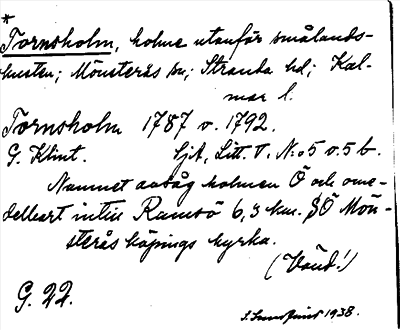 *
Tornsholm, holme utanför smålands-
kusten; Mönsterås sn; Stranda hd; Kal-
mar l.
Tornsholm 1787 o. 1792.
G. Klint. SjA, Litt. V. N:o 5 o. 5 b.
Namnet avsåg holmen Ö och ome-
delbart intill Ramsö 6,3 km. SÖ Mön-
sterås köpings kyrka.
(Vänd!)
G. 22.
1938.